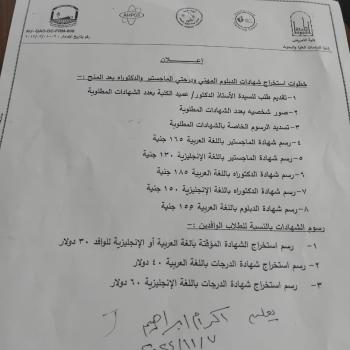 كلية التمريض
AHPGS
KU-QAO-OC-FRM-008
إعـــلان
خطوات استخراج شهادات الدبلوم المهني ودرجتي الماجستير والدكتوراه بعد المنح :-
١-تقديم طلب للسيدة الأستاذ الدكتور/ عميد الكلية بعدد الشهادات المطلوبة
٢-صور شخصيه بعدد الشهادات المطلوبة
٣-تسديد الرسوم الخاصة بالشهادات المطلوبة
٤- رسم شهادة الماجستير باللغة العربية ١٦٥ جنية
٥- رسم شهادة الماجستير باللغة الإنجليزية ١٣٠ جنية
٦- رسم شهادة الدكتوراه باللغة العربية ١٨٥ جنية
٧- رسم شهادة الدكتوراه باللغة الإنجليزية ١٥٠ جنية
٨- رسم شهادة الدبلوم باللغة العربية ١٥٥ جنية
رسوم الشهادات بالنسبة للطلاب الوافدين :-
١- رسم استخراج الشهادة المؤقتة باللغة العربية أو الإنجليزية للوافد ٣٠ دولار
٢- رسم استخراج شهادة الدرجات باللغة العربية ٤٠ دولار
٣- رسم استخراج شهادة الدرجات باللغة الإنجليزية ٦٠ دولار
ابراهيم
٢٠٢٤/١١/٧